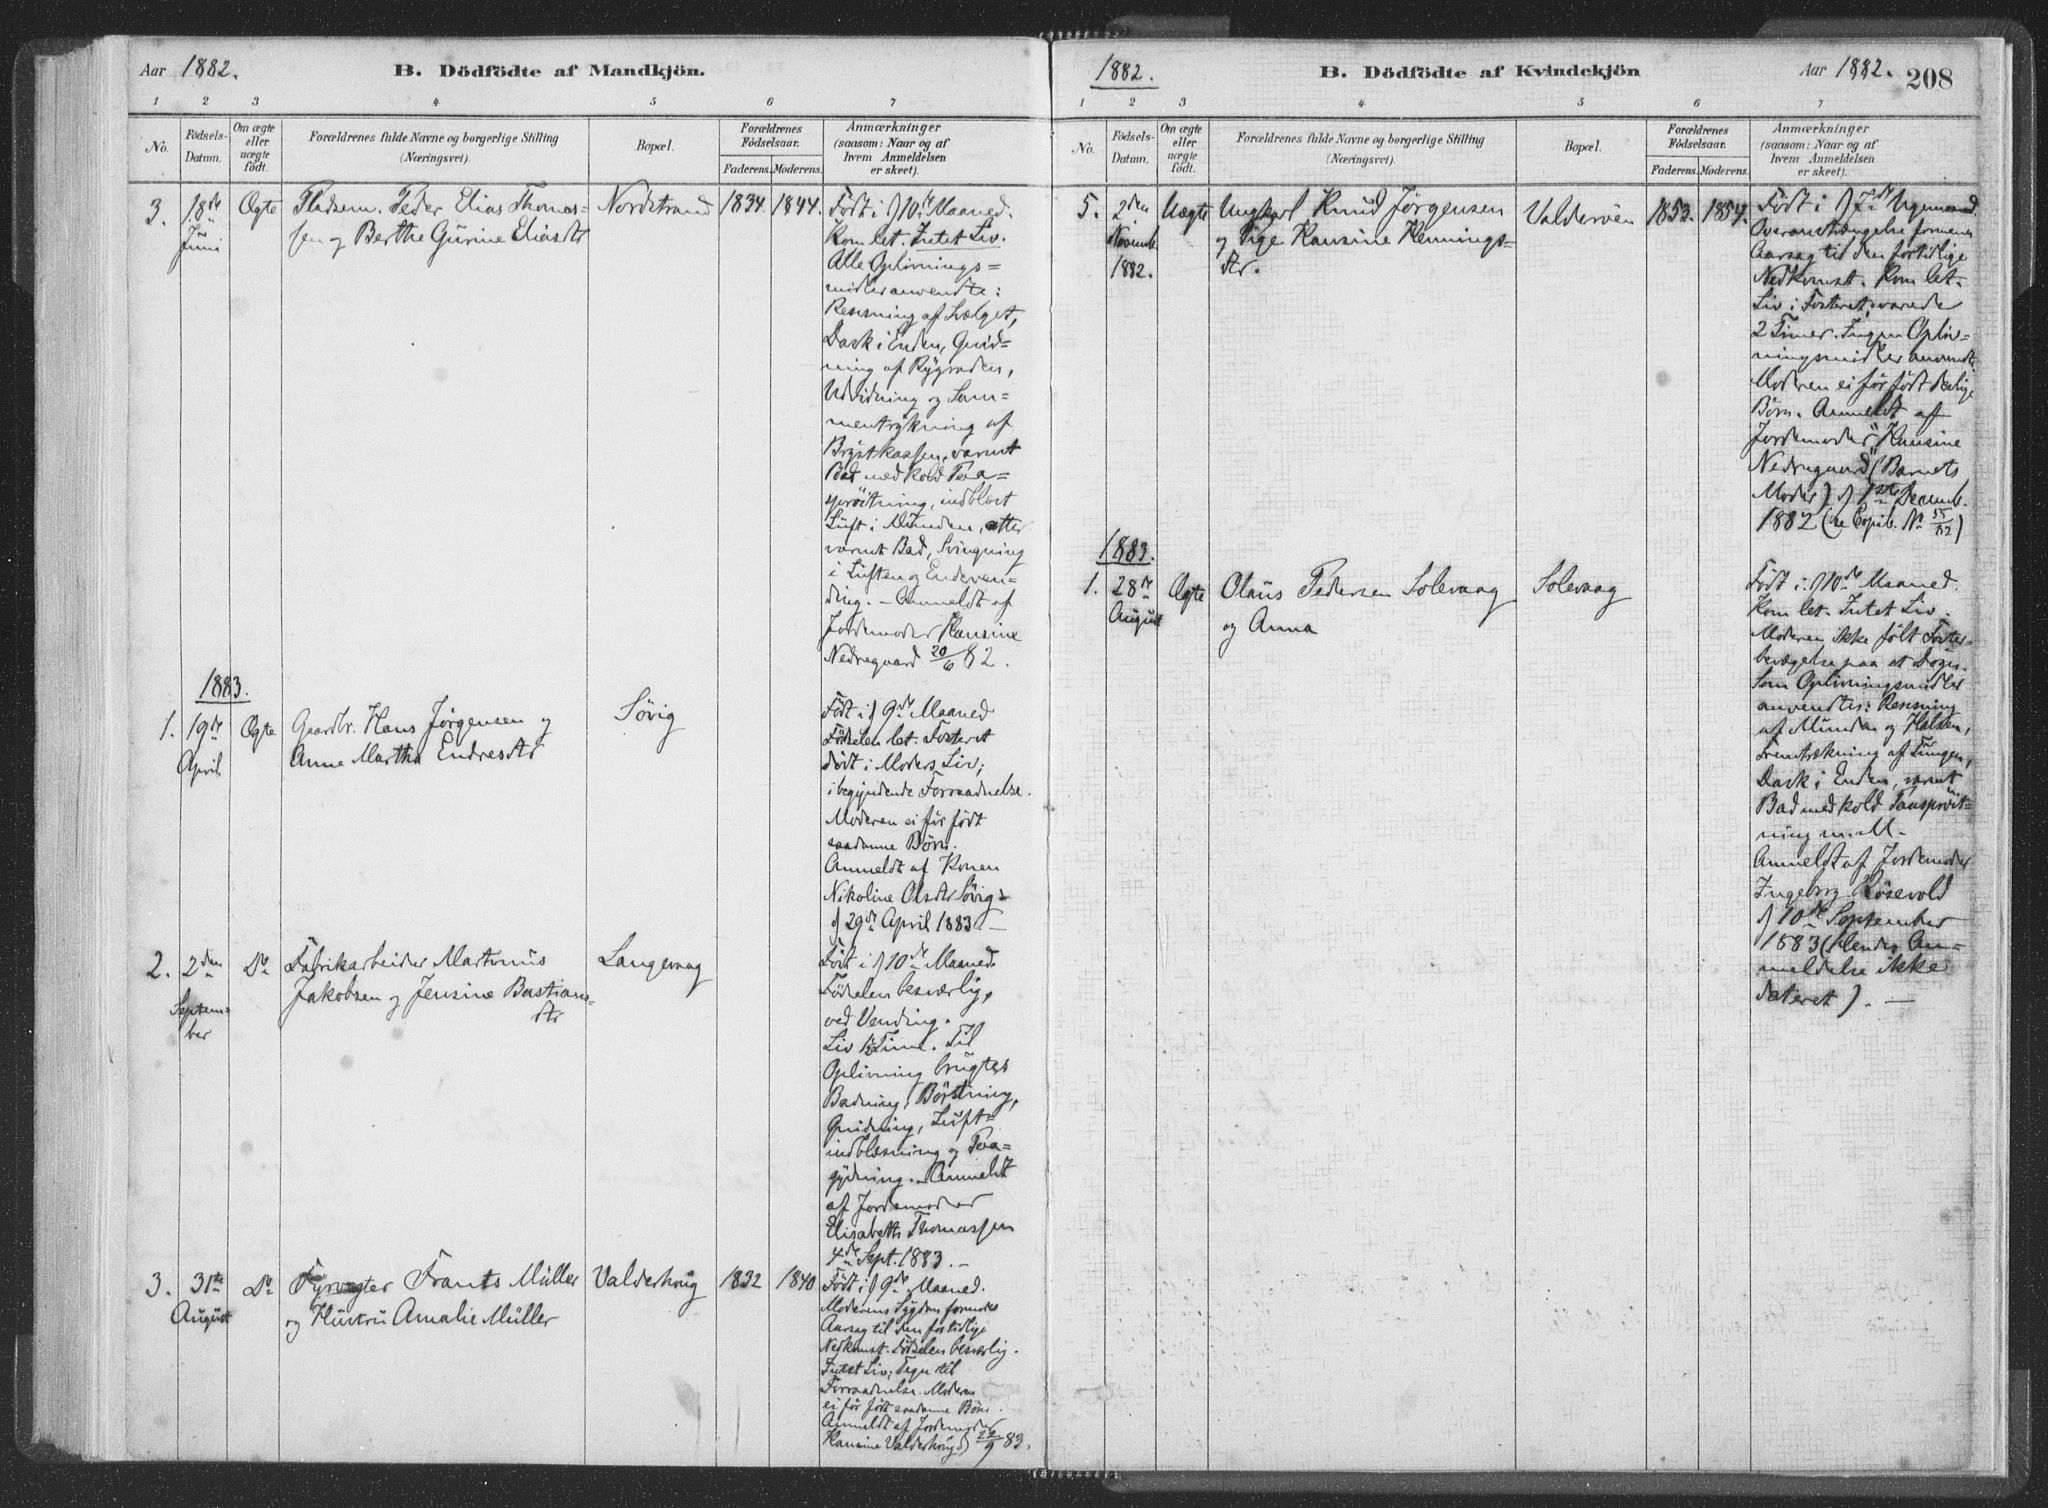 Aar 1882.
B. Dödfödte af Mandkjön.
1 2 3 4 5 6 7
No.
Födsels-
Datum.
Om ægte
eller
uægte
født.
Forældrenes fulde Navne og borgerlige Stilling
(Næringsvei).
Bopæl.
Forældrenes
Födselsaar.
Faderens. Moderens.
Anmærkninger
(saasom: Naar og af
hvem Anmeldelsen
er skeet).
3. 18de
Juni
Ægte
Pladsem. Peder Elias Thomas-
sen og Berthe Gurine Eliasdtr
Nordstrand
1834. 1844.
Født i d 10de Maaned.
Kom let. Intet Liv.
Alle Oplivnings=
midler anvendte:
Rensning af Svælget,
Dask i Enden, Gnid=
ning af Rygraden,
Udvidning og Sam=
mentrykning af
Brystkassen, varmt
Bad med kold Paa=
sprøitning, indblæst
Luft i Munden, atter
varmt Bad, Svingning
i Luften og Endeven=
ding. – Anmeldt af
Jordemoder Hansine
Nedregaard 20/6 82.
1883.
1. 19de
April
Ægte
Gaardbr. Hans Jørgensen og
Anne Martha Endresdtr
Søvig
Født i d 9de Maaned
Fødselen let. Fosteret
dødt i Moders Liv;
i begyndende Forraadnelse.
Moderen ei før født
saadanne Børn.
Anmeldt af Konen
Nikoline Olsdtr Søvig
d 29de April 1883 –
2. 2den
Septem=
ber
Do
Fabrikarbeider Martinus
Jakobsen og Jensine Bastians=
dtr
Langevaag
Født i d 10de Maaned
Fødselen besværlig,
ved Vending.
Liv ½ Time. Til
Oplivning brugtes
Badning, Børstning,
Gnidning, Luft=
indblæsning og Paa=
gydning. – Anmeldt
af Jordemoder
Elisabeth Thomassen
4de Sept. 1883. –
3. 31te
August
Do
Fyrvogter Frants Müller
og Hustru Amalie Müller
Valderhoug
1832 1840
Født i d 9de Maaned.
Moderens Sygdom formenes
Aarsag til den fortidlige
Nedkomst. Fødselen besværlig.
Intet Liv; Tegn til
Forraadnelse. Moderen
ei før født saadanne Børn.
Anmeldt af Jordemoder
Hansine Valderhoug d 22/9 83.
1882.
B. Dödfödte af Kvindekjön
Aar 1882. 208
1 2 3 4 5 6 7
No.
Födsels-
Datum.
Om ægte
eller
uægte
født.
Forældrenes fulde Navne og borgerlige Stilling
(Næringsvei).
Bopæl.
Forældrenes
Födselsaar.
Faderens. Moderens.
Anmærkninger
(saasom: Naar og af
hvem Anmeldelsen
er skeet).
5. 2den
Novemb.
1882.
Uægte
Ungkarl Knud Jørgensen
og Pige Hansine Hennings=
dtr.
Valderøen
1853. 1854.
Født i d 7de
Overanstrengelse formenes
Aarsag til den fortidlige
Nedkomst. Kom let.
Liv i Fosteret; varede
2 Timer. Ingen Opliv=
ningsmidler anvendt.
Moderen ei før født
Børn. Anmeldt af
Jordemoder Hansine
Nedregaard (Barnets
Moder) d 1ste Decemb.
1882 (se Copib. No 55/82)
1883.
1. 28de
August
Ægte
Olaus Pedersen Solevaag
og Anna
Solevaag
Født i d 10de Maaned.
Kom let. Intet Liv.
Moderen ikke følt Foster=
bevægelse paa et Døgn.
Som Oplivningsmidler
anvendtes: Rensning
af Munden og Halsen,
Fremtrækning af Tungen,
Dask i Enden, varmt
Bad med kold Paasprøit=
ning m. M.
Anmeldt af Jordemoder
Ingeborg Røsevold
d 10de September
1883 (Hendes An=
meldelse ikke
dateret). –